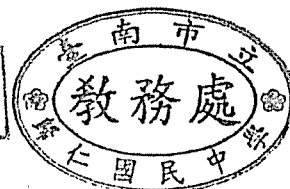 臺南市立
教務處
歸仁國民中學